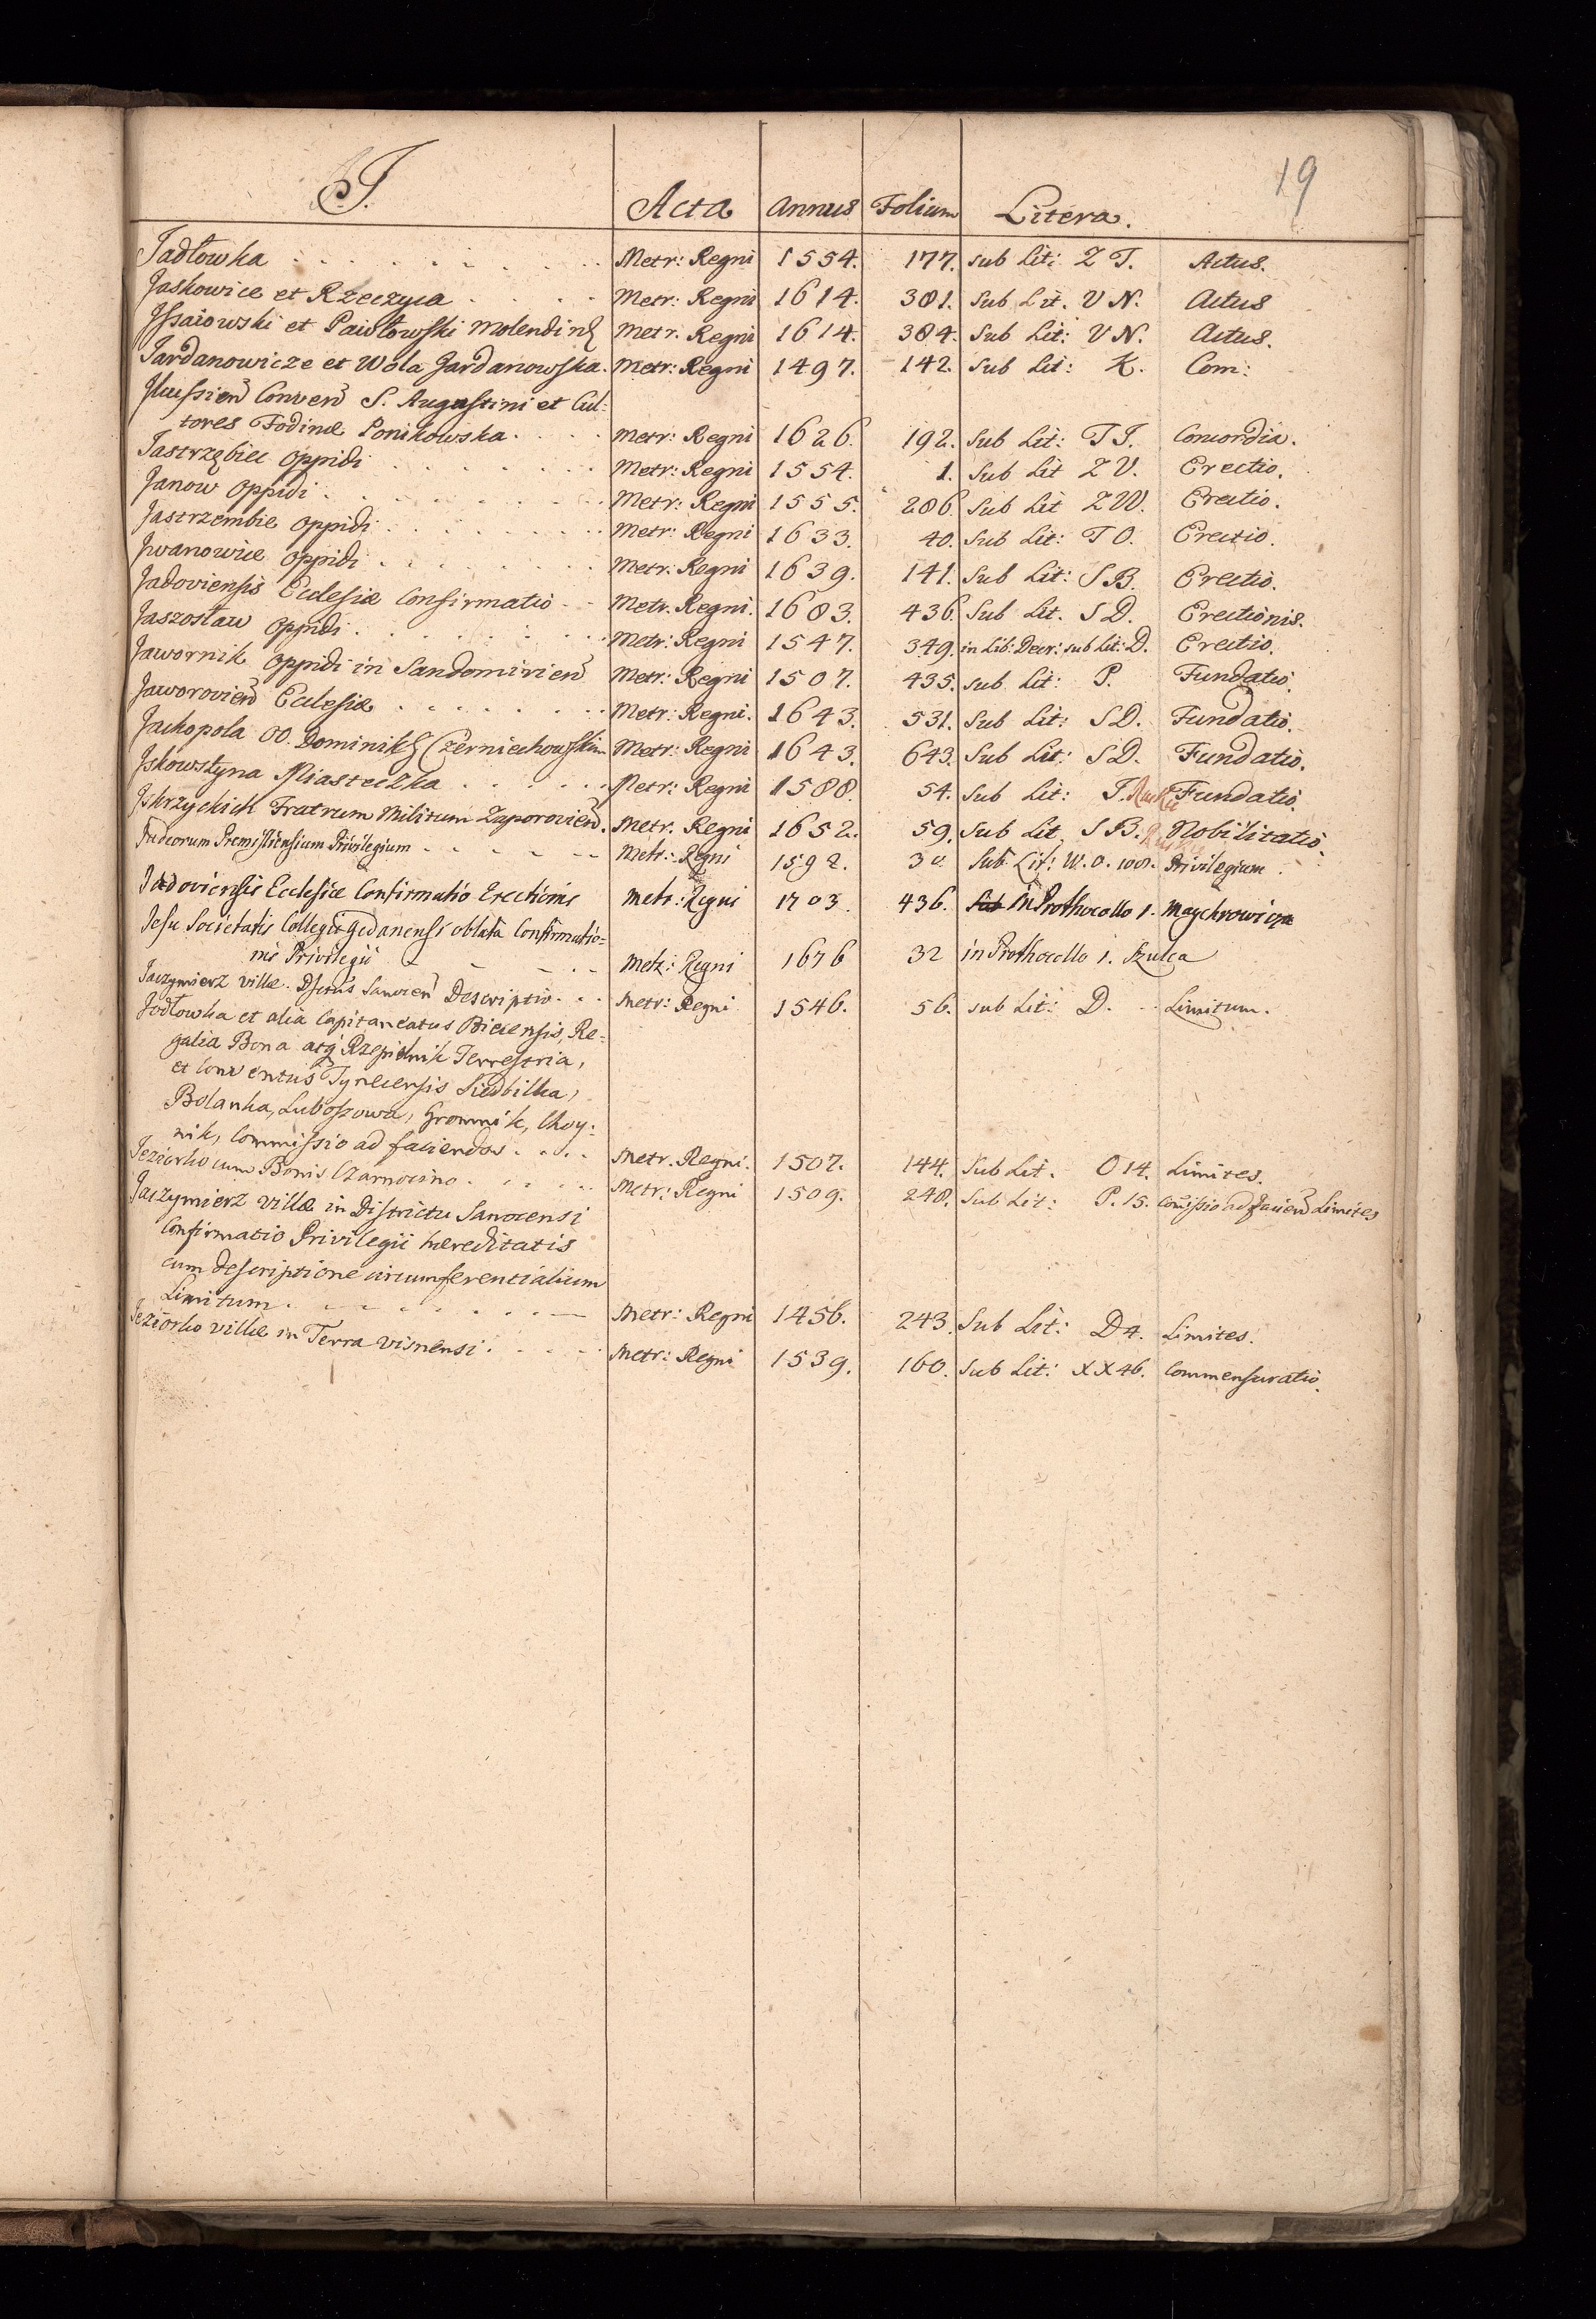 19
J. Acta Annus Folium Litera.
Jadłowka . . . . . . . . . Metr: Regni 1554. 177. sub Lit: Z T. Actus.
Jaskowice et Rzeczyca . . . . Metr: Regni 1614. 381. Sub Lit. V N. Actus
Metr. Regni 1614. 384. Sub Lit: V N. Actus.
Jardanowicze et Wola Jardanowska. Metr: Regni 1497. 142. Sub Lit: K. Com:
Conven S. Augustini et Cul=
tores Fodinæ Ponikowska . . . . Metr: Regni 1626. 192. Sub Lit: T J. Concordia.
Jastrzębiec Oppidi . . . . . . . Metr: Regni 1554. 1. Sub Lit Z V. Erectio.
Janow Oppidi . . . . . . . . . Metr: Regni 1555. 286. Sub Lit Z W. Erectio.
Jastrzembie Oppidi . . . . . . . Metr: Regni 1633. 40. Sub Lit: T O. Erectio.
Jwanowice Oppidi . . . . . . . . Metr: Regni 1639. 141. Sub Lit: S B. Erectio.
Jadoviensis Ecclesiæ Confirmatio - - Metr. Regni. 1683. 436. Sub Lit. S D. Erectionis.
Jaszosław Oppidi . . . . . . . . Metr: Regni 1547. 349. in Lib: Decr: sub Lit: D. Erectio.
Jawornik Oppidi in Sandomirien Metr: Regni 1507. 435. sub Lit: P. Fundatio.
Jaworovien Ecclesiæ . . . . . . . Metr: Regni. 1643. 531. Sub Lit: S D. Fundatio.
Jachopola OO. Dominik Czerniechowskim Metr: Regni 1643. 643. Sub Lit: S D. Fundatio.
Jskowstyna Miasteczka . . . . . . Metr: Regni 1588. 54. Sub Lit: T. Ruskie Fundatio.
Jskrzyckich Fratrum Militum Zaporovien. Metr. Regni 1652. 59. Sub Lit S B. Ruskie Nobilitatio.
Judeorum Premisliensium Privilegium - - - - - Metr: Regni 1592. 30 Sub Lit: W. O. 100. Privilegium.
Jadoviensis Ecclesiæ Confirmatio Erectionis Metr: Regni 1703. 436. Sub in Prothocollo 1. Maychrowicza
Jesu Societatis Collegii Gedanensi oblata Confirmatio=
nis Privilegii - - - . - Metr: Regni 1676 32 in Prothocollo 1. Szulca
Jaczymierz villæ. Dstctus Sanocen Descriptio. . . Metr: Regni 1546. 56. sub Lit: D. - Limitum.
Jodłowka et alia Capitaneatus Biecensis, Re=
galia Bona atq Rzepiennik Terrestria,
et Conventus Tynecensis Siedliska,
Bolanka, Luboszowa, Gromnik, Choy=
nik, Commissio ad faciendos . . . . Metr. Regni. 1507. 144. Sub Lit. O 14. Limites.
Jeziorko cum Bonis Czarnocino . . . . . . Metr: Regni 1509. 248. Sub Lit: P. 15. Comissio ad facien Limites
Jaczymierz villæ in Districtu Sanocensi
Confirmatio Privilegii hæreditatis
cum descriptione circumferentialium
Limitum . - - - . . . . - Metr: Regni 1456. 243. Sub Lit: D 4. Limites.
Jeziorko villæ in Terra visnensi . . . . . Metr: Regni 1539. 160. Sub Lit: XX 46. Commensuratio.